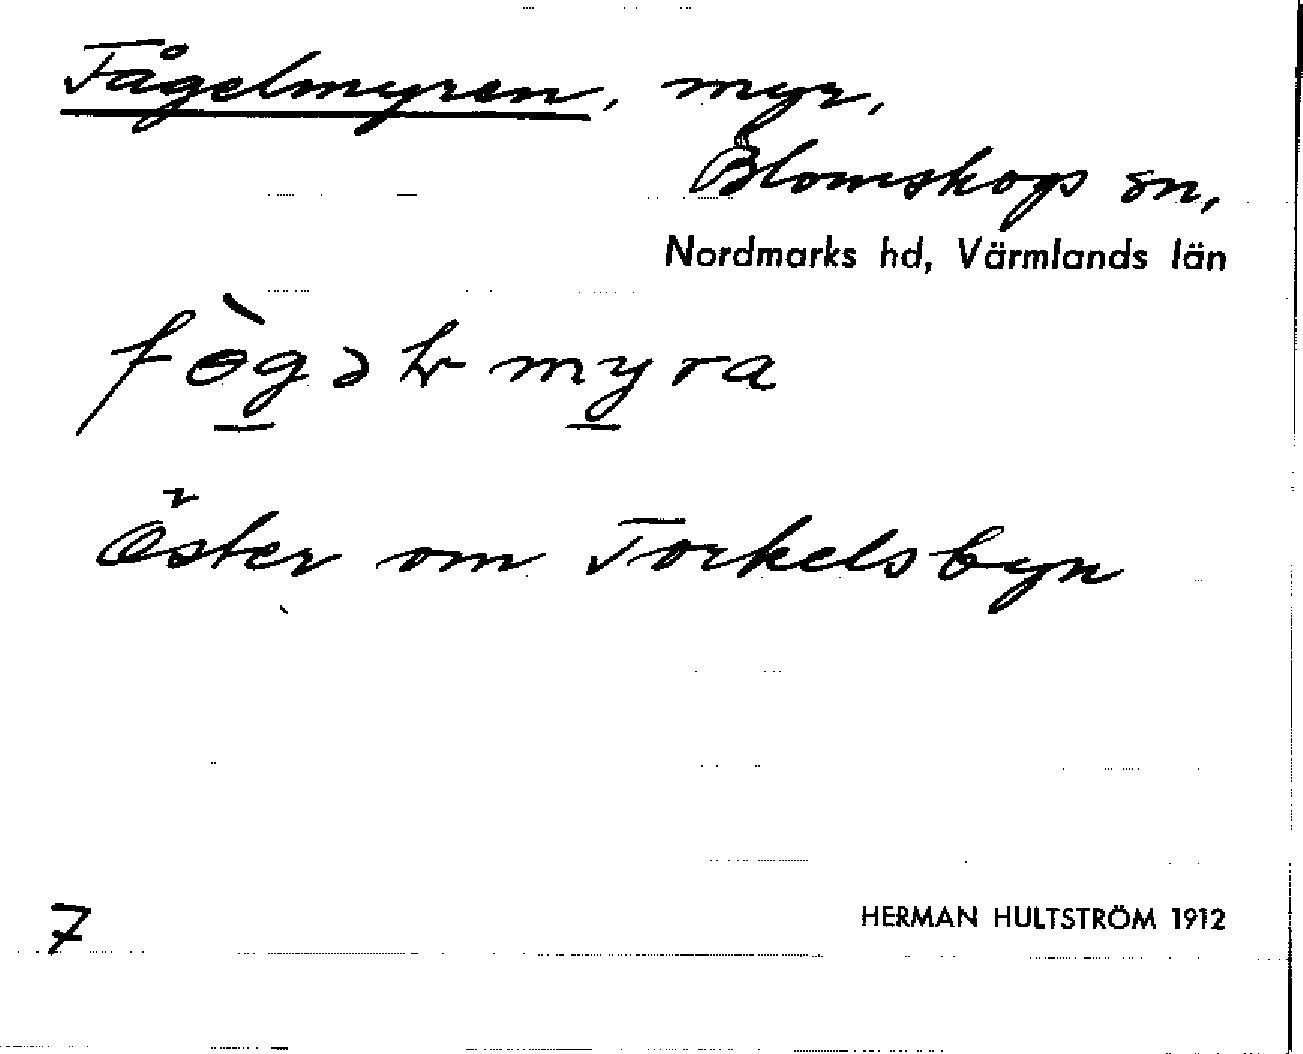 Fågelmyren, myr,
Blomskogs sn,
Nordmarks hd, Värmlands län
Öster om Torkelsbyn
7
HERMAN HULTSTRÖM 1912